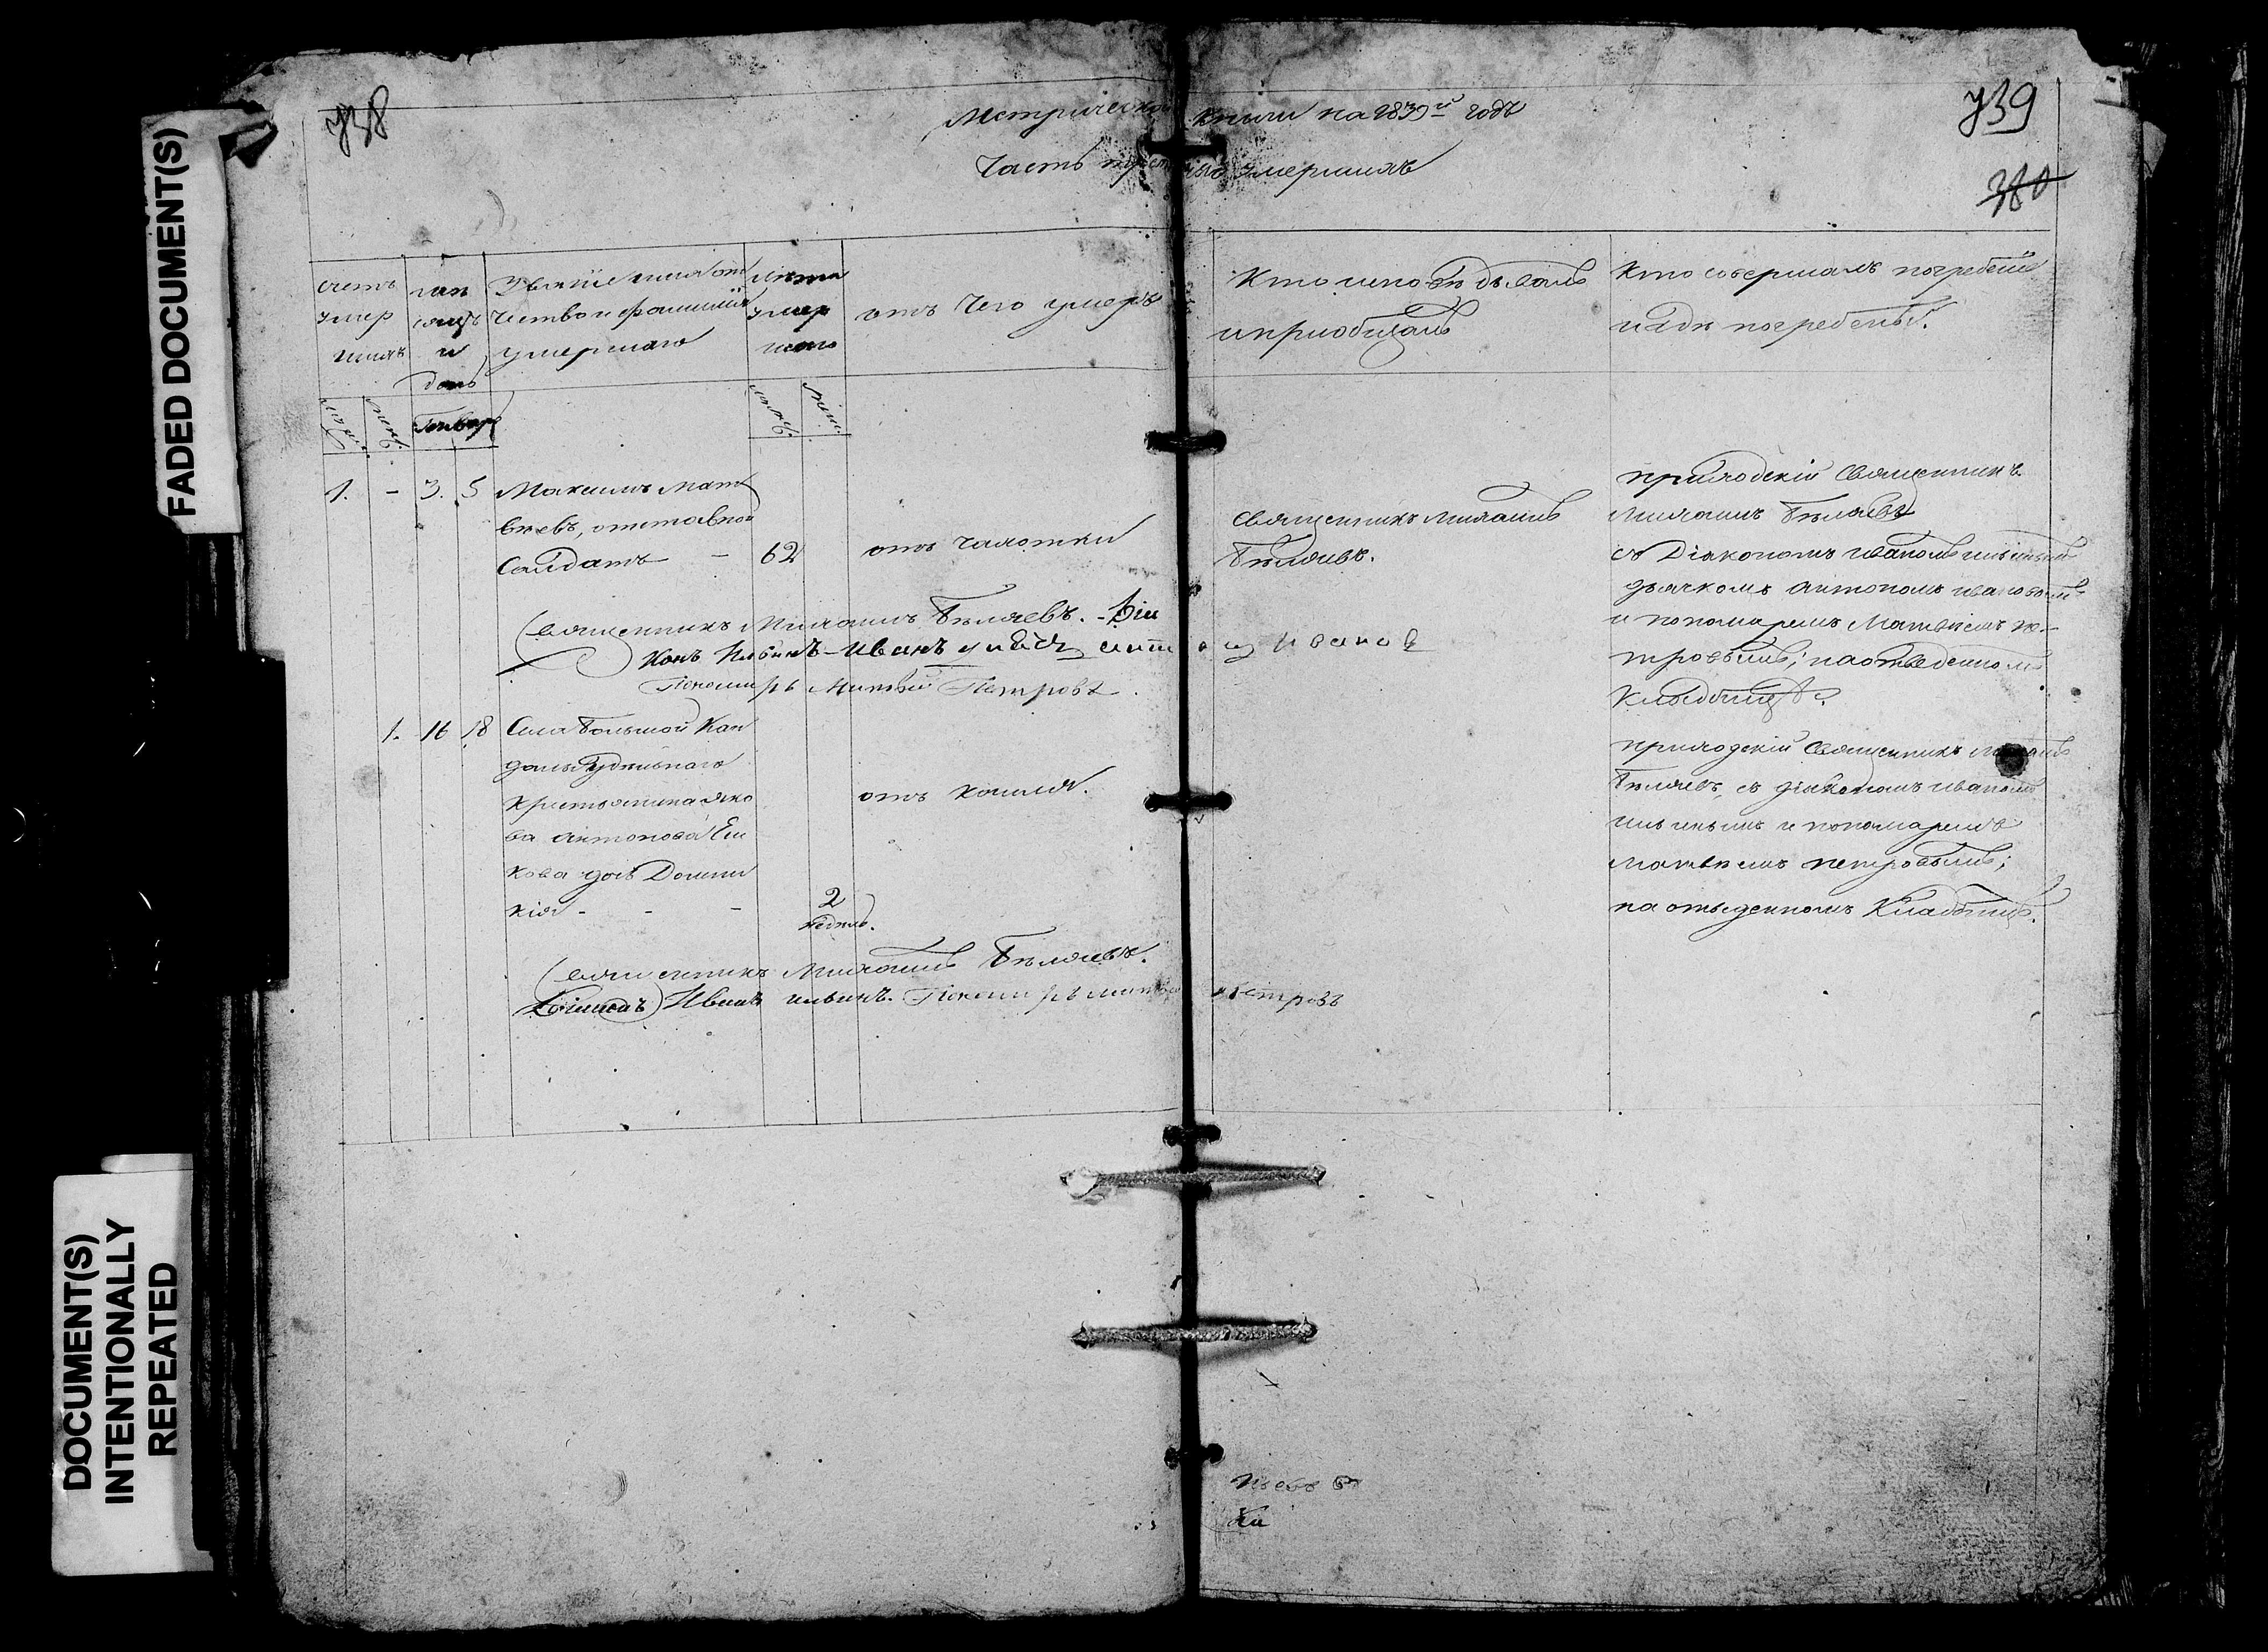 FADED DOCUMENT(S)
DOCUMENT(S)
INTENTIONALLY
REPEATED
738
739
380
Метрической книги на 1839й годъ
Часть третья о умершихъ
счетъ
умер
шихъ
мѣ
сяцъ
и
день
Званіе имя от
чество и фамилія
умершаго
лѣта
умер
шаго
отъ чего умеръ
Кто исповѣдывалъ
и приобщалъ
Кто совершалъ погребеніе
и гдѣ погребены.
муж.
женс.
Генварь
1. - 3. 5
Максимъ Мат
вѣевъ, отставной
Солдатъ - 62
отъ чахотки
Священникъ Михаилъ
Бѣляевъ.
приходскій Священникъ
Михаилъ Бѣляевъ
съ Діякономъ Иваномъ Ильинымъ
дьячкомъ Антономъ Ивановымъ
и пономаремъ Матвѣемъ Пе-
тровымъ; на отведенномъ
Кладбищѣ.
Священникъ Михаилъ Бѣляевъ. - Діа
конъ Ильинъ - Иванъ Ивановъ
Пономарь Матвѣй Петровъ.
1. 16 18
Села Большой Кан
далы удѣльнаго
крестьянина Яко
ва Антонова
кова дочь Домни
кія - - -
2
недѣль.
отъ кашля.
приходскій Священникъ Михаилъ
Бѣляевъ, съ діякономъ Иваномъ
Ильинымъ и пономаремъ
Матвѣемъ Петровымъ;
на отведенномъ Кладбищѣ.
Священникъ Михаилъ Бѣляевъ.
Діаконъ Иванъ Ильинъ. Пономарь Матвѣй Петровъ